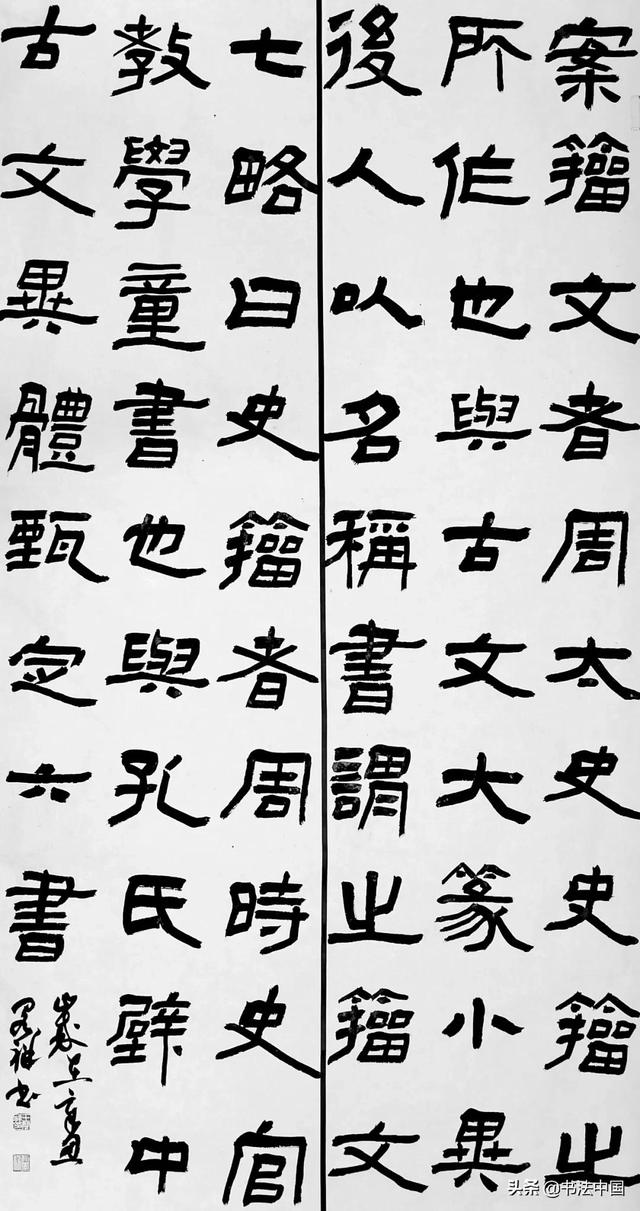 案籀文者周太史史籀之
所作也與古文大篆小異
後人以名稱書謂之籀文
七略曰史籀者周時史官
教學童書也與孔氏壁中
古文異體甄定六書
歲在辛丑
书
头条 @书法中国